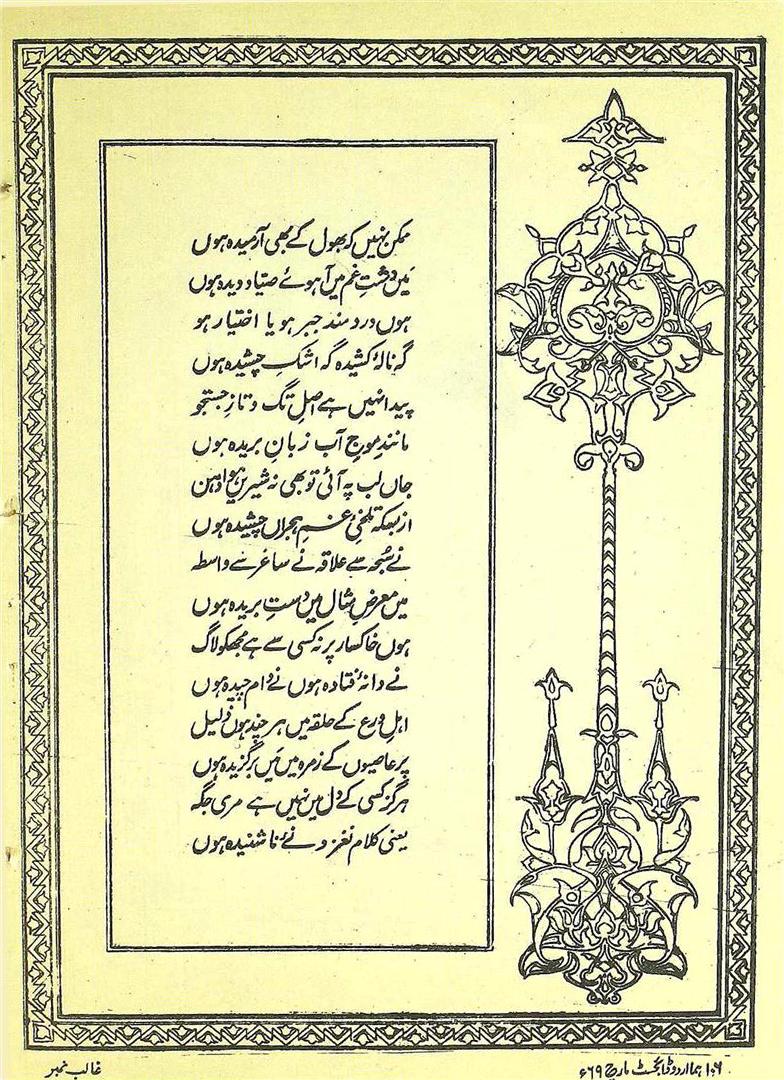 ممکن نہیں کہ بھول کے بھی آرمیدہ ہوں
میں دشتِ غم میں آہوئے صیاد دیدہ ہوں
ہوں دردمند جبر ہو یا اختیار ہو
گہ نالۂ کشیدہ گہ اشکِ چشیدہ ہوں
پیدا نہیں ہے اصلِ تگ و تازِ جستجو
مانندِ موجِ آب زبانِ بریدہ ہوں
جاں لب پہ آئی تو بھی نہ شیریں ہوا دہن
از بسکہ تلخیٔ غمِ ہجراں چشیدہ ہوں
نے سُبحہ سے علاقہ نے ساغر سے واسطہ
میں معرضِ مثال میں دستِ بریدہ ہوں
ہوں خاکسار پر نہ کسی سے ہے مجھکو لاگ
نے دانۂ فتادہ ہوں نے دام چیدہ ہوں
اہلِ ورع کے حلقہ میں ہر چند ہوں ذلیل
پر عاصیوں کے زمرہ میں میں برگزیدہ ہوں
ہرگز کسی کے دل میں نہیں ہے مری جگہ
یعنی کلام نغز و نے ناشنیدہ ہوں
غالب نمبر
۱۰۶ ہما اردو ڈائجسٹ مارچ ۶۹ء